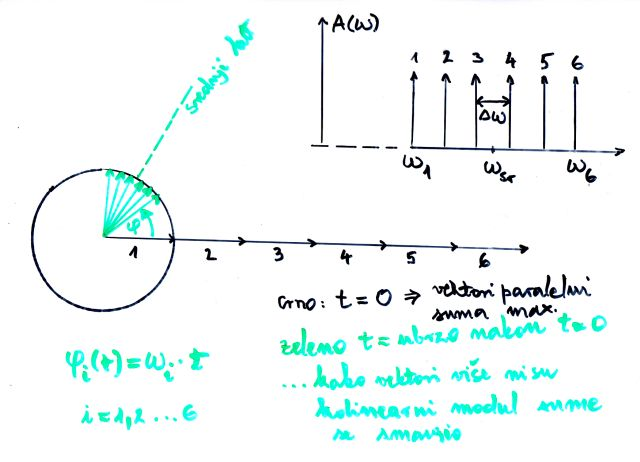 A(ω)
1 2 3 4 5 6
Δω
ω1 ωsr ω6
srednji kut
φ
1 2 3 4 5 6
crno: t = 0 ⇒ vektori paralelni
suma max.
zeleno t = ubrzo nakon t = 0
... kako vektori više nisu
kolinearni modul sume
se smanjio
φi(t) = ωi · t
i = 1, 2 ... 6